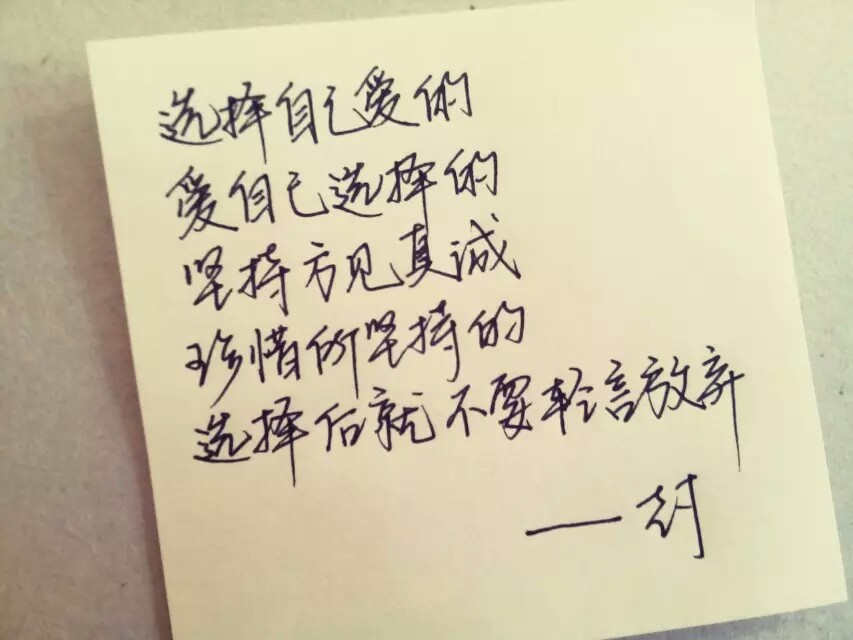 选择自己爱的
爱自己选择的
坚持方见真诚
珍惜所坚持的
选择后就不要轻言放弃
——封